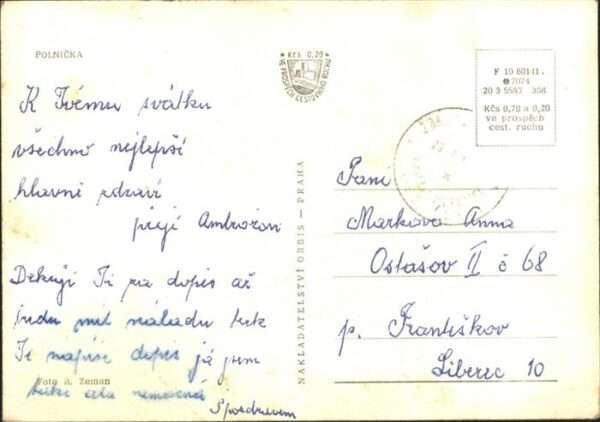 POLNIČKA
K Tvému svátku
všechno nejlepší
hlavně zdraví
přejí Ambrožovi
Dekuji Ti za dopis až
budu mít náladu tak
Ti napíši dopis já jsem
také celá nemocná
S pozdravem
Foto A. Zeman
NAKLADATELSTVÍ ORBIS — PRAHA
★ Kčs 0,20 ★
VE PROSPĚCH CESTOVNÍHO RUCHU
F 10 60141.
7074
20 3 5593 308
Kčs 0,70 a 0,20
ve prospěch
cest. ruchu
Paní
Markova Anna
Ostašov II č 68
p. Františkov
Liberec 10